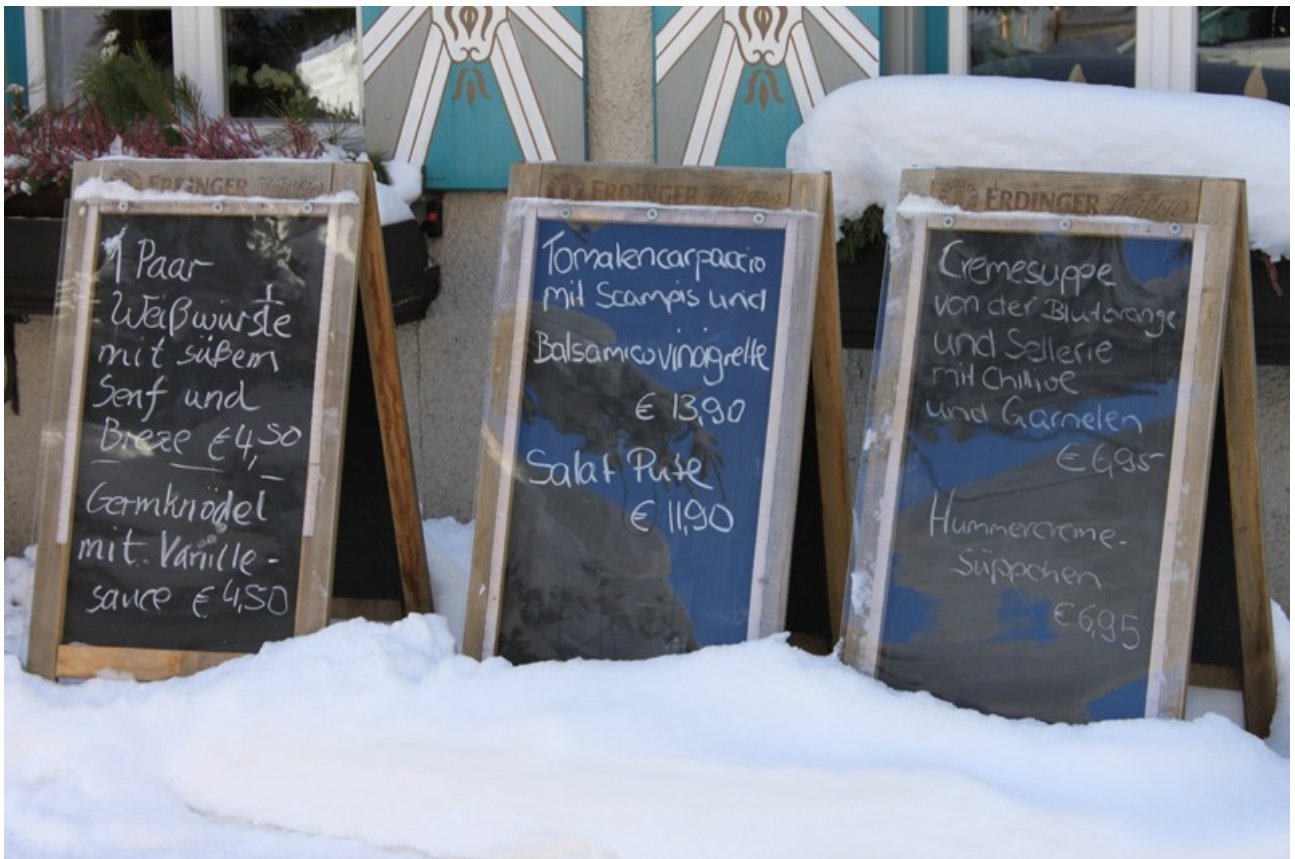 ERDINGER Weißbier
1 Paar
Weißwürste
mit süßem
Senf und
Breze €4,50
Germknödel
mit Vanille-
sauce €4,50
ERDINGER Weißbier
Tomatencarpaccio
mit Scampis und
Balsamicovinaigrette
€ 13,90
Salat Pute
€ 11,90
ERDINGER Weißbier
Cremesuppe
von der Blutorange
und Sellerie
mit Chiliöl
und Garnelen
€ 6,95
Hummercreme-
süppchen
€ 6,95